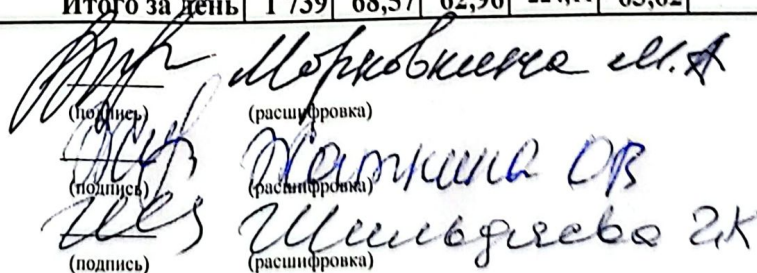 Итого за день 1 739 68,57 62,96 63,62
Морковкина М.А
(подпись) (расшифровка)
Жаткина ОВ
(подпись) (расшифровка)
Шильдяева
(подпись) (расшифровка)